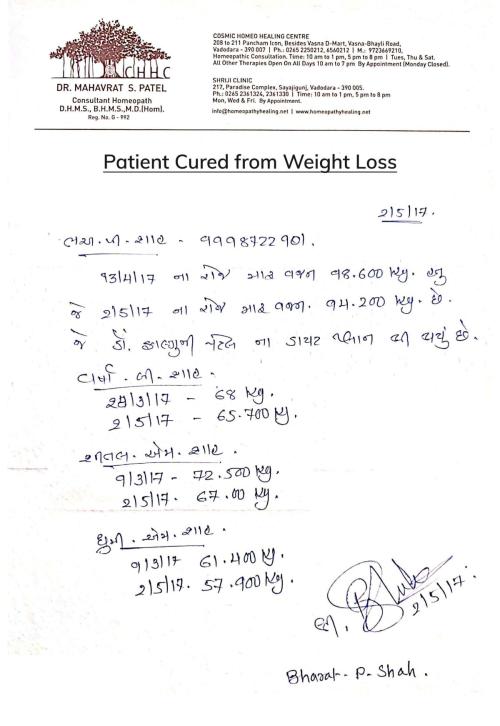 CHHC
DR. MAHAVRAT S. PATEL
Consultant Homeopath
D.H.M.S., B.H.M.S.,M.D.(Hom).
Reg. No. G - 992
COSMIC HOMEO HEALING CENTRE
208 to 211 Pancham Icon, Besides Vasna D-Mart, Vasna-Bhayli Road,
Vadodara - 390 007 | Ph.: 0265 2250212, 6560212 | M.: 9723669210,
Homeopathic Consultation. Time: 10 am to 1 pm, 5 pm to 8 pm | Tues, Thu & Sat.
All Other Therapies Open On All Days 10 am to 7 pm By Appointment (Monday Closed).
SHRIJI CLINIC
217, Paradise Complex, Sayajigunj, Vadodara - 390 005.
Ph.: 0265 2361324, 2361330 | Time: 10 am to 1 pm, 5 pm to 8 pm
Mon, Wed & Fri. By Appointment.
info@homeopathyhealing.net | www.homeopathyhealing.net
Patient Cured from Weight Loss
૨/૫/૧૭.
પી. શાહ - ૧૧૧8722૧૦૧.
૧૩/૪/૧૭ ના રોજ મારૂ વજન ૧8.600 Kg. હતુ
જે ૨/૫/૧૭ ના રોજ મારૂ વજન. ૧૪.200 Kg. છે.
જે ડૉ. ફાલ્ગુની પટેલ ના ડાયટ પ્લાન થી થયું છે.
વર્ષા. બી. શાહ.
૨8/3/17 - 68 Kg.
૨/5/17 - 65.700 Kg.
શીતલ. એમ. શાહ.
૧/3/17 - 72.500 Kg.
૨/5/17. 67.00 Kg.
ધ્રુમી. એમ. શાહ.
૧/3/17 61.400 Kg.
૨/5/17. 57.900 Kg.
૨/5/17.
Bharat - P - Shah.